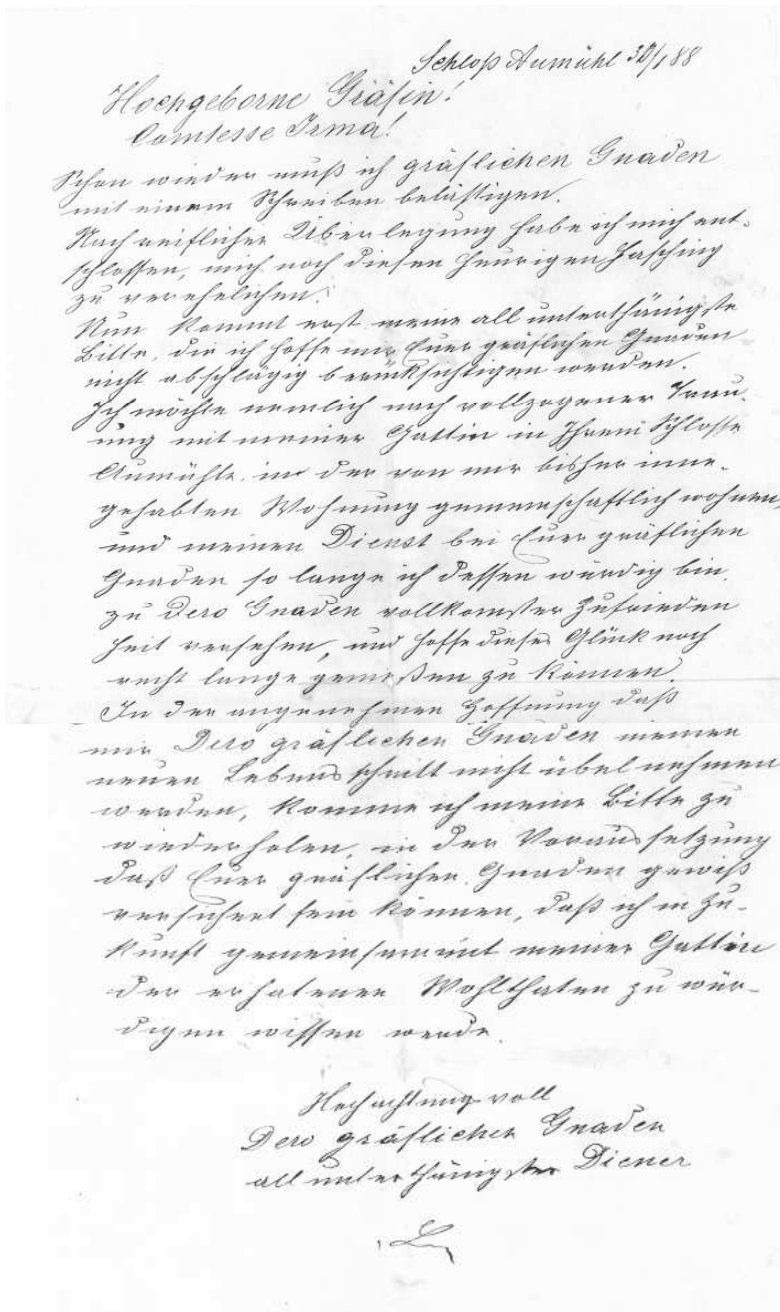 Schloß Aumühl 30/1 88
Hochgeborne Gräfin!
Comtesse Irma!
Schon wieder muß ich gräflichen Gnaden
mit einem Schreiben belästigen.
Nach reiflicher Überlegung habe ich mich ent-
schlossen, mich noch diesen heurigen Fasching
zu verehelichen.
Nun kommt erst meine all unterthänigste
Bitte, die ich hoffe mir Euer gräflichen Gnaden
nicht abschlägig berücksichtigen werden.
Ich möchte nemlich nach vollzogener Trau-
ung mit meiner Gattin in Ihrem Schlosse
Aumühle, in der von mir bisher inne-
gehabten Wohnung gemeinschaftlich wohnen,
und meinen Dienst bei Euer gräflichen
Gnaden so lange ich dessen würdig bin,
zu Dero Gnaden vollkomster Zufrieden
heit versehen, und hoffe dieses Glück noch
recht lange genießen zu können.
In der angenehmen Hoffnung daß
mir Dero gräflichen Gnaden meinen
neuen Lebensschritt nicht übel nehmen
werden, komme ich meine Bitte zu
wiederholen, in der Voraussetzung
daß Euer gräflichen Gnaden gewiß
versichert sein können, daß ich in Zu-
kunft gemeinsam mit meiner Gattin
der erhatenen Wohlthaten zu wür-
digen wissen werde.
Hochachtungsvoll
Dero gräflichen Gnaden
all unterthänigster Diener